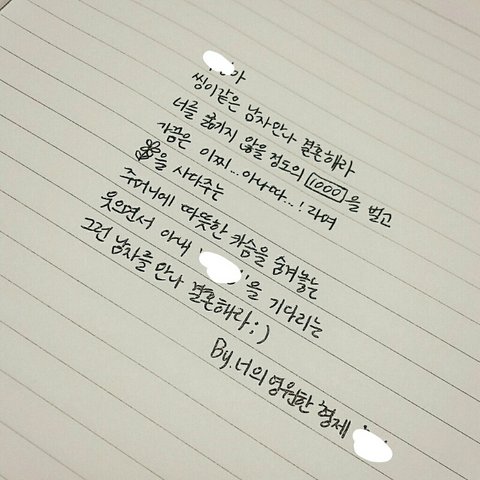 아
씽이같은 남자만나 결혼해라
너를 굶기지 않을 정도의 1000을 벌고
가끔은 이찌...아나따..! 라며
을 사다주는
주머니에 따뜻한 캬슴을 숨겨놓는
웃으면서 아내 ' '을 기다리는
그런 남자를 만나 결혼해라;)
By. 너의 영원한 형제